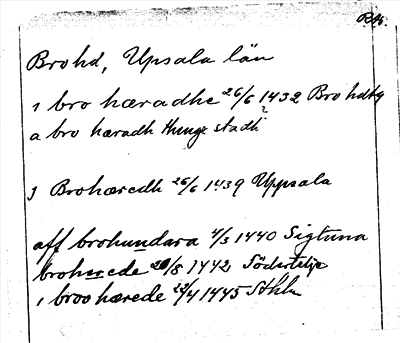 RA5.
Brohd, Upsala län
ı bro hæradhe 26/6 1432 Brohdtg
a bro hæradh thinge stadh
?
J Brohæredh 26/6 1439 Uppsala
aff brohundara 4/3 1440 Sigtuna
brohærede /8 1442 Södertelje
ı broo hærede 22/4 1445 Sthlm